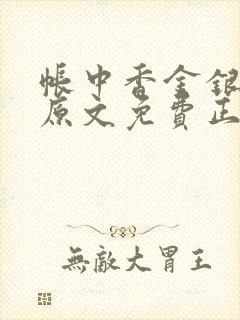 帳中香金銀
原文免費正
無敵大胃王